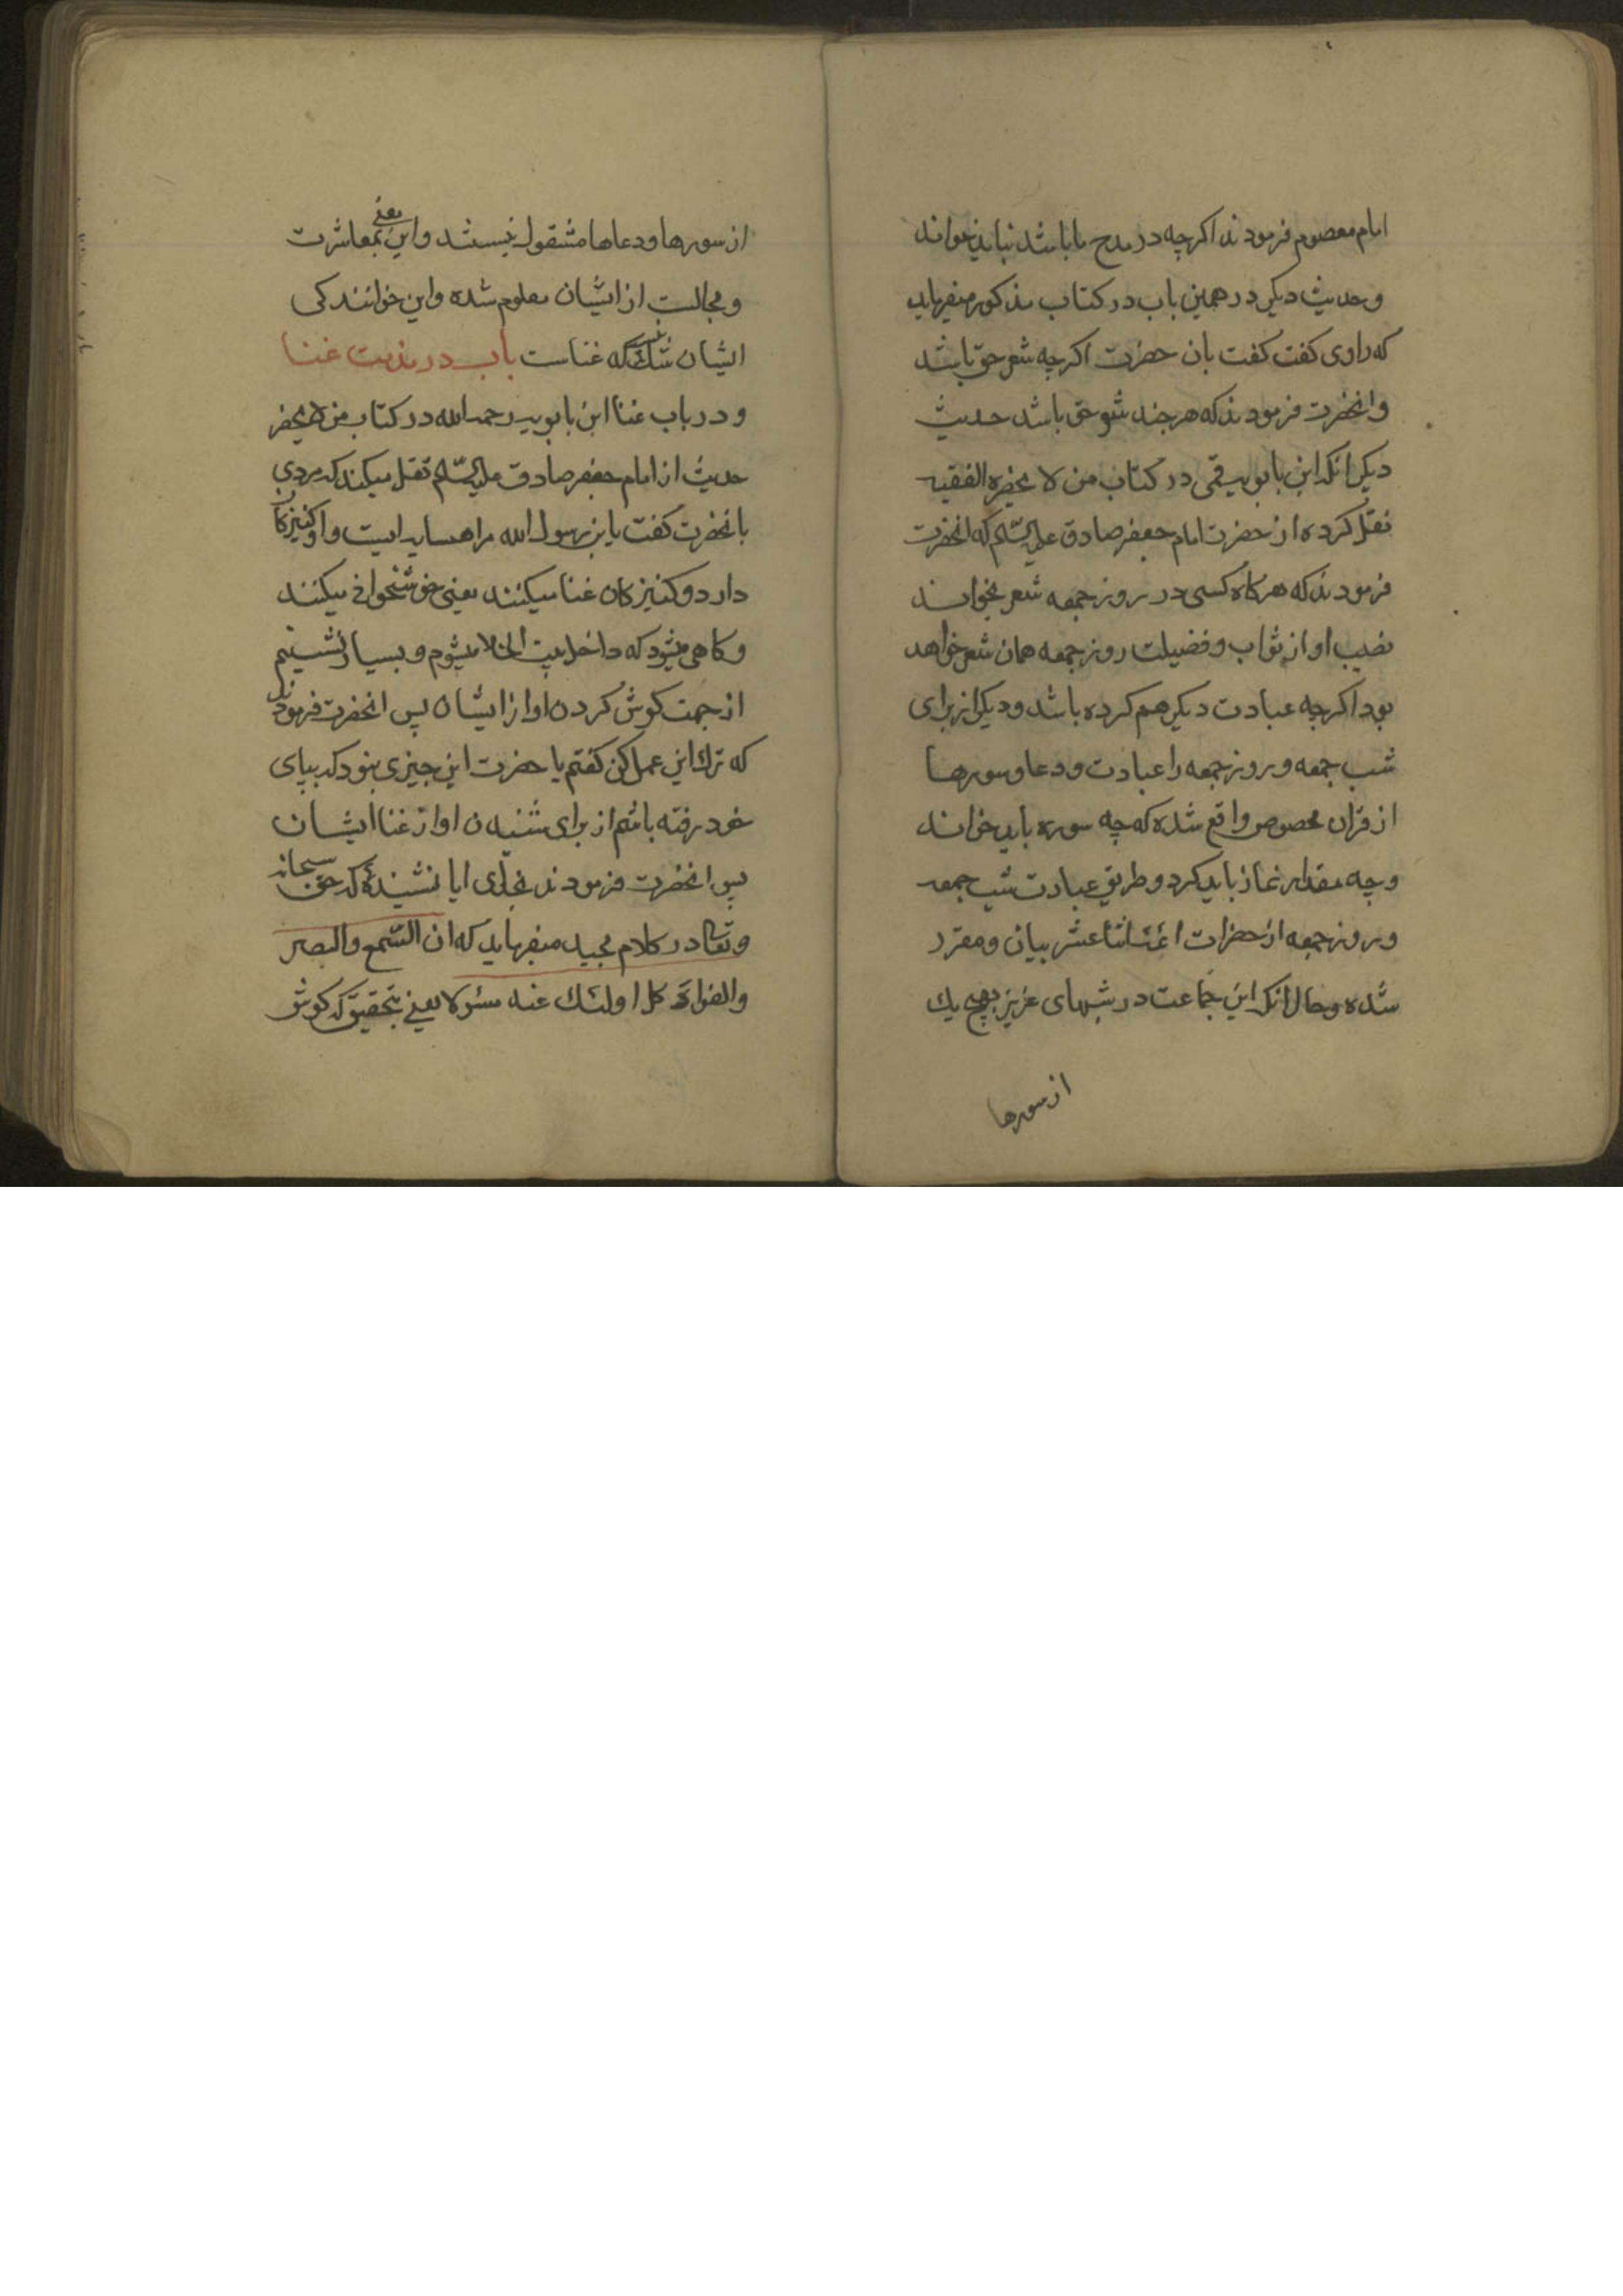 امام معصوم فرمودند اکرچه در مدح ما باشد نباید خواند
و حدیث دیکر در همین باب در کتاب مذکور میفرماید
که راوی کفت کفت بان حضرت اکرچه شعر حق باشد
و انحضرت فرمودند که هر چند شعر حق باشد حدیث
دیکر انکه ابن بابویه قمی در کتاب من لا یحضره الفقیه
نقل کرده از حضرت امام جعفر صادق علیه السّلام که انحضرت
فرمودند که هرکاه کسی در روز جمعه شعر بخواند
نصیب او از ثواب و فضیلت روز جمعه همان شعر خواهد
بود اکرچه عبادت دیکر هم کرده باشد و دیکر از برای
شب جمعه و روز جمعه را عبادت و دعا و سورها
از قران مخصوص واقع شده که چه سوره باید خواند
و چه مقدار نماز باید کرد و طریق عبادت شب جمعه
و روز جمعه از حضرات ائمه اثنا عشر بیان و مقرر
شده و حال انکه این جماعت در شبهای عزیز بهیچ یك
از سورها
از سورها و دعاها مشقول نیستند و این یعنی بمعاشرت
و مجالست از ایشان معلوم شده و این خوانندکی
ایشان شك نیست که غناست باب در مذمت غنا
و در باب غنا ابن بابویه رحمه الله در کتاب من لا یحضر
حدیث از امام جعفر صادق علیه السّلام نقل میکند که مردی
بانحضرت کفت یابن رسول الله مرا همسایه ایست و او کنیزکان
دارد و کنیزکان غنا میکنند یعنی خوشخوانی میکنند
و کاهی میشود که داخل بیت الخلا میشوم و بسیار نشینم
از جهت کوش کردن اواز ایشان پس انحضرت فرمودند
که ترك این عمل کن کفتم یا حضرت این چیزی نبود که بپای
خود رفته باشم از برای شنیدن اواز غنا ایشان
پس انحضرت فرمودند بخدای ایا نشیندهٔ که حق سبحانه
و تعالی در کلام مجید میفرماید که ان السّمع والبصر
والفواد کل اولئك عنه مسئولا یعنی بتحقیق که کوش